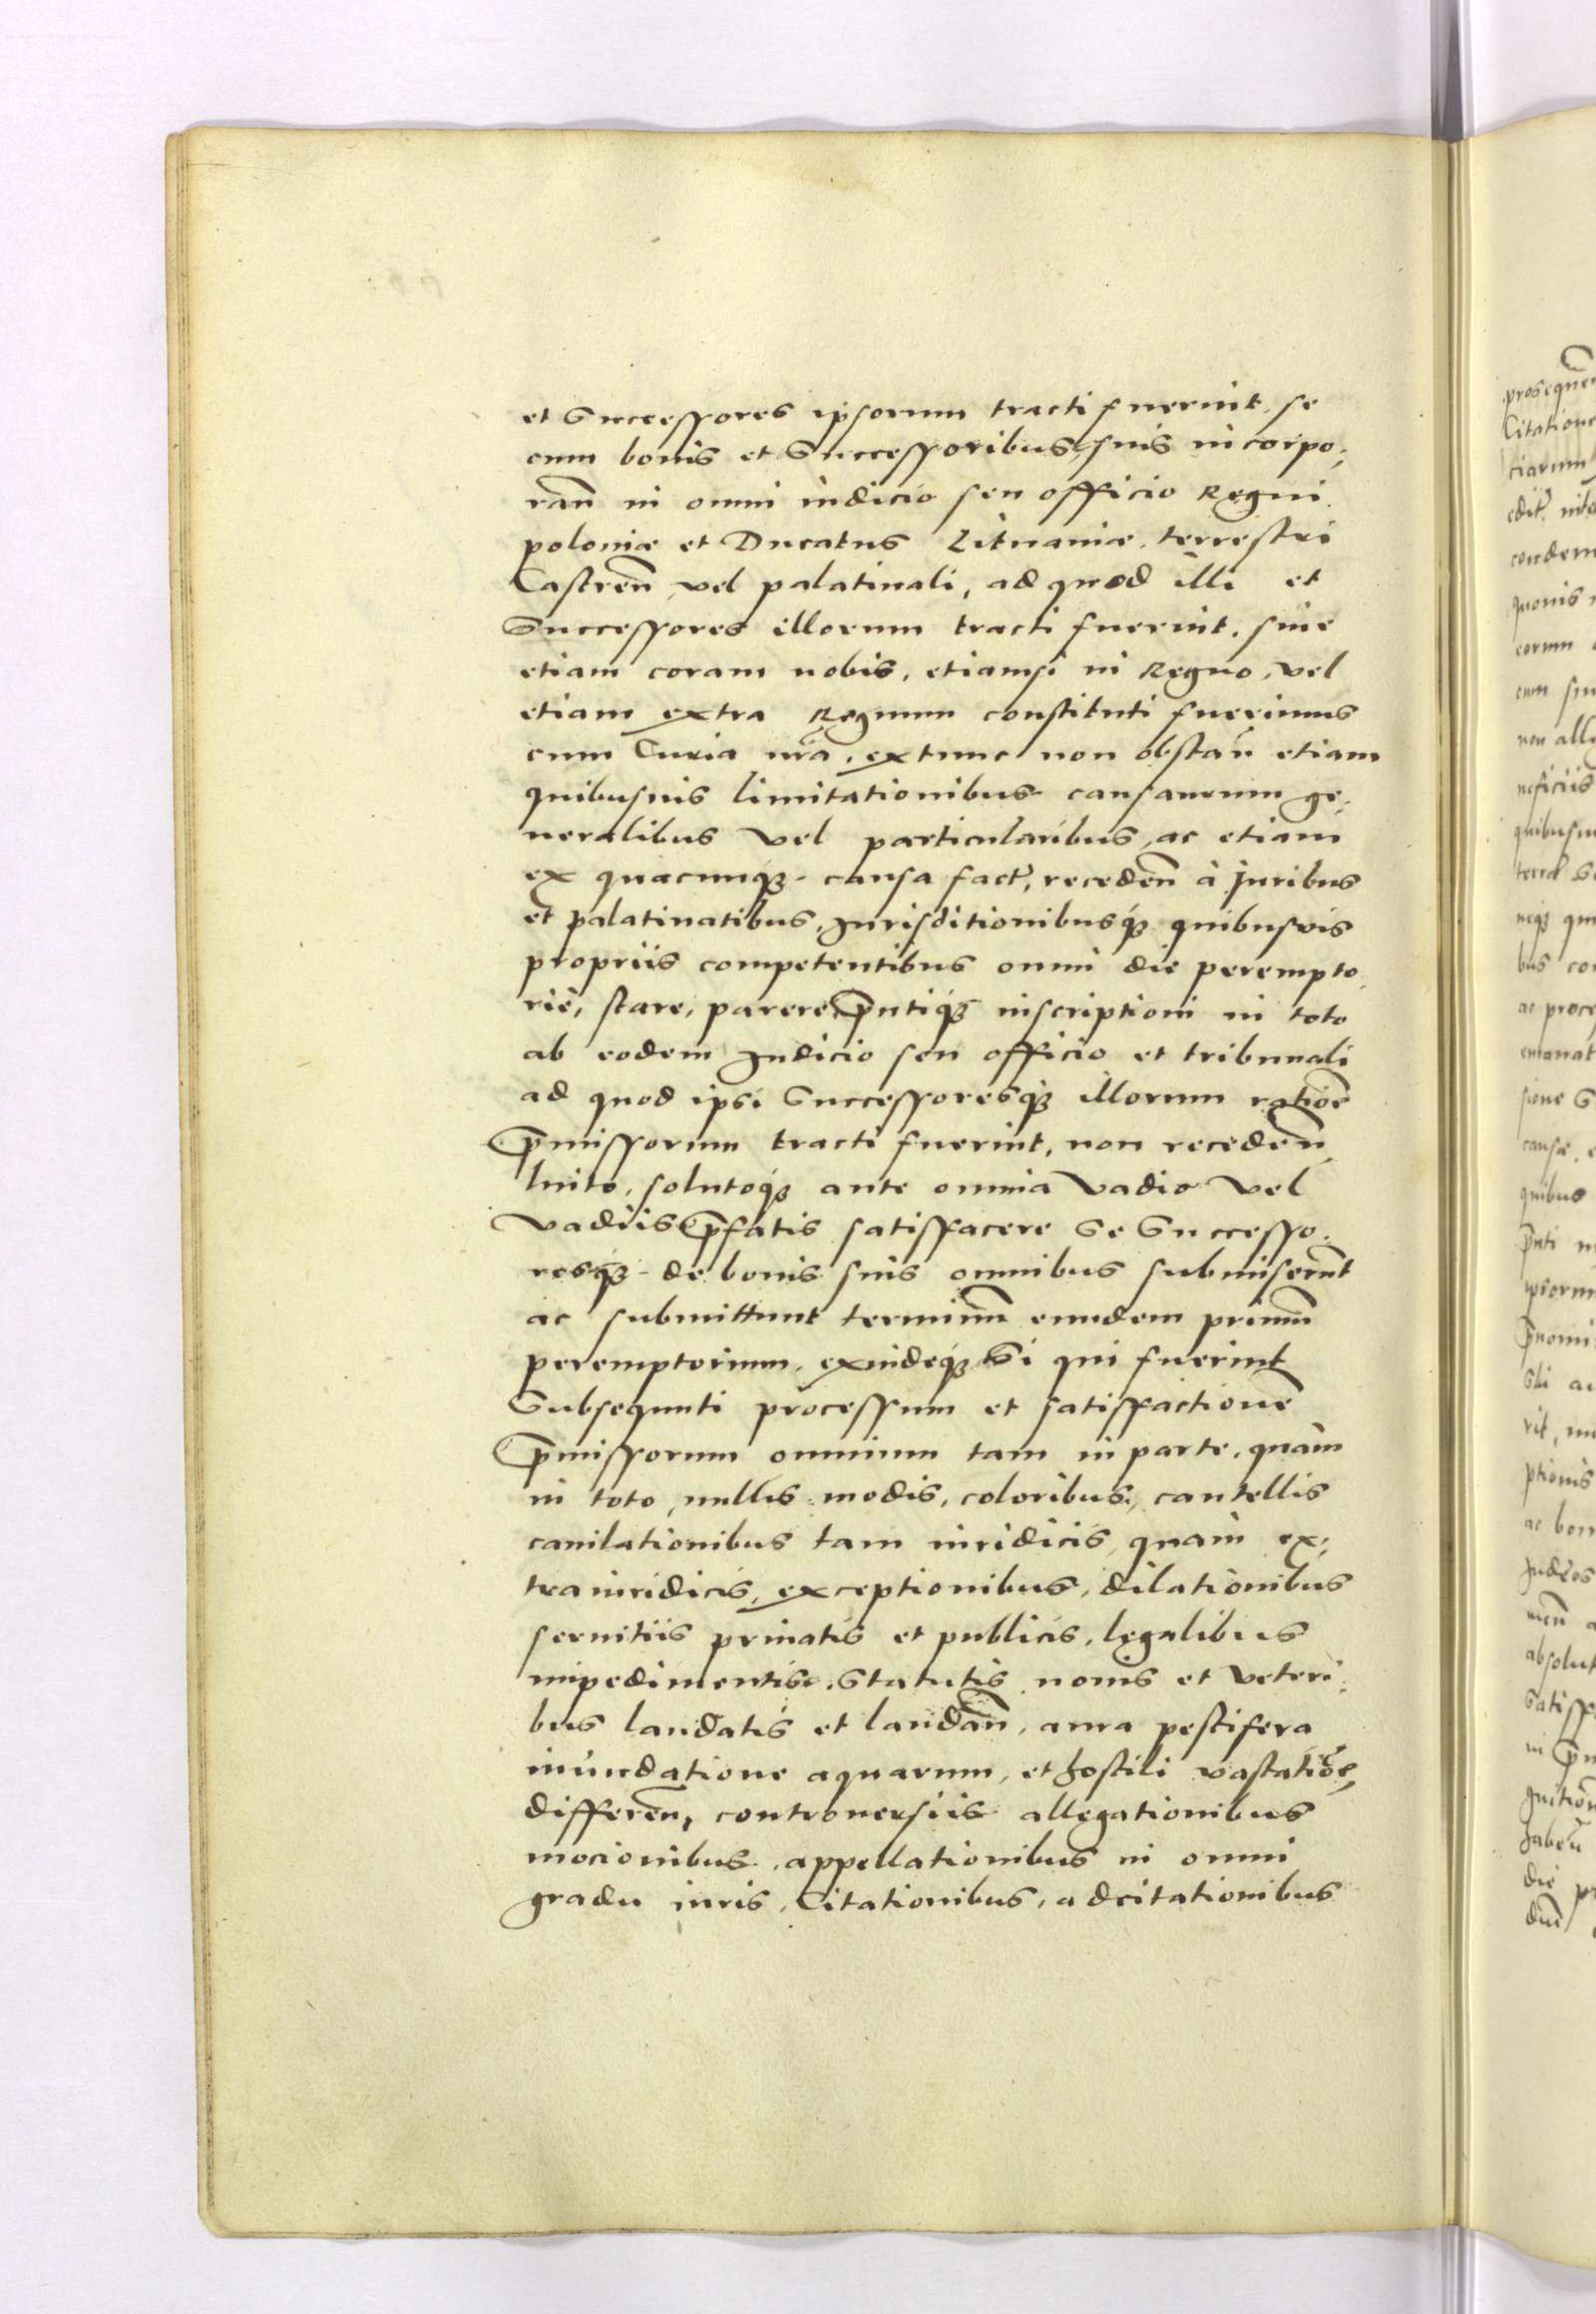 et Successores ipsorum tracti fuerint, se
cum bonis et Successoribus suis incorpo,
rañ in omni iudicio seu officio Regni
poloniæ et Ducatus Lituaniæ, terrestri
Castreñ, vel palatinali, ad quod illi et
Successores illorum tracti fuerint, siue
etiam coram nobis, etiamsi in Regno, vel
etiam extra Regnum constituti fuerimus
cum Curia nrã, extunc non obstañ etiam
quibusuis limitationibus causarum ge,
neralibus vel particularibus, ac etiam
ex quacunqȝ causa fact̃, recedeñ à Juribus
et palatinatibus, Jurisditionibusqȝ quibusvis
propriis competentibus omni die perempto,
riè, stare, parere, p̃ntiqȝ inscriptioni in toto
ab eodem Judicio seu officio et tribunali
ad quod ipsi Successoresqȝ illorum ratiõe
p̃missorum tracti fuerint, non recedeñ,
luito, solutoqȝ ante omnia vadio vel
vadiis p̃fatis satisfacere se Successo,
resqȝ de bonis suis omnibus submiserũt
ac submittunt terminũ eundem primũ
peremptorium, exindeqȝ si qui fuerint
Subsequuti processum et satisfactionẽ
p̃missorum omnium tam in parte, quàm
in toto, nullis modis, coloribus, cautellis
cauilationibus tam iuridicis, quàm ex,
traiuridicis, exceptionibus, dilationibus
seruitiis priuatis et publicis, legalibus
impedimentis, Statutis nouis et veteri,
bus laudatis et laudañ, aura pestifera
inundatione aquarum, et hostili vastatiõe,
differeñ, controuersiis allegationibus
mocionibus, appellationibus in omni
gradu iuris, Citationibus, adcitationibus